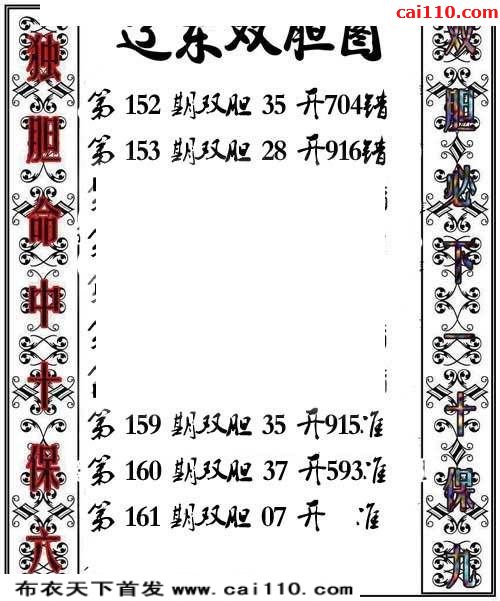 cai110.com
辽东双胆图
独胆命中十保六
双胆必下一十保九
第 152 期双胆 35 开704错
第 153 期双胆 28 开916错
第 159 期双胆 35 开915准
第 160 期双胆 37 开593准
第 161 期双胆 07 开 准
布衣天下首发 www.cai110.com